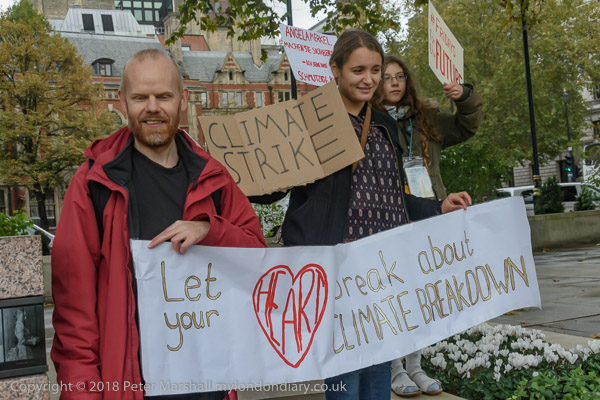 #FRIDAYS
FOR
FUTURE
ANGELA MERKEL
CLIMATE
STRIKE
Let
your
HEART
break about
CLIMATE BREAKDOWN
Copyright © 2018 Peter Marshall mylondondiary.co.uk